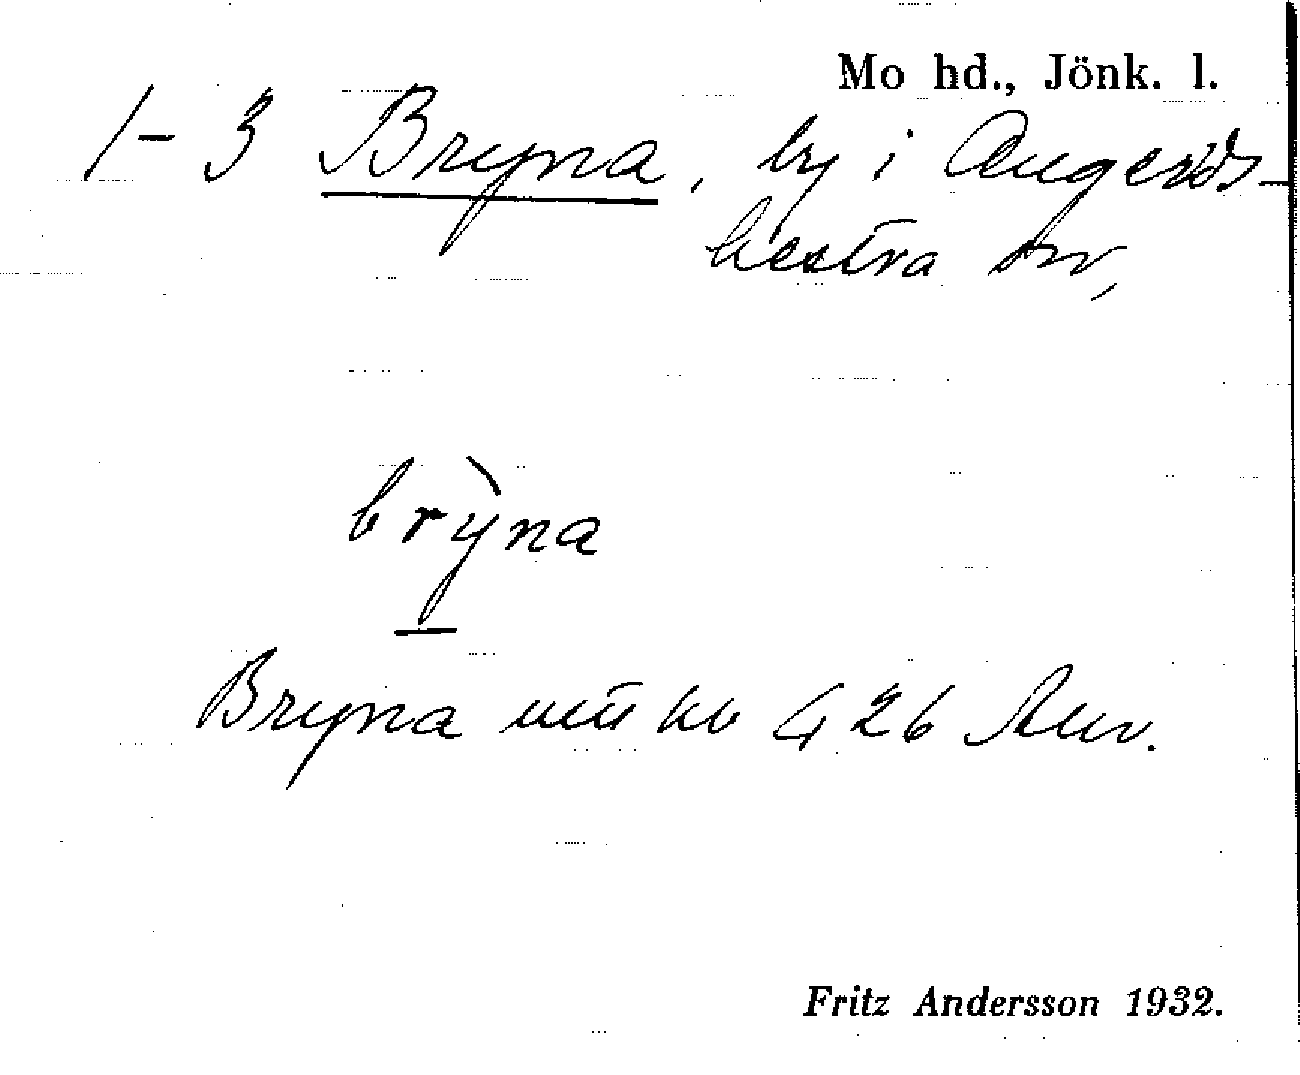 Mo hd., Jönk. l.
1-3 Bryna, by i Angerds-
hestra sn,
brỳna
Bryna mtl kb 426 Anv.
Fritz Andersson 1932.